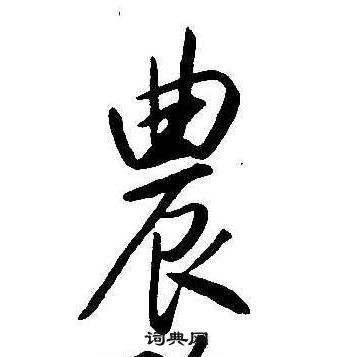 農
词典网